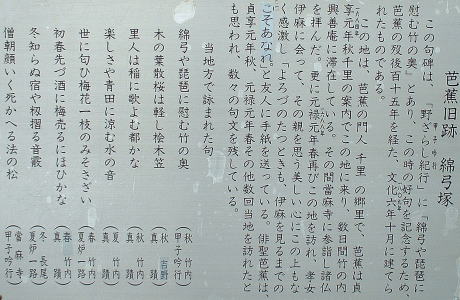 芭蕉旧跡　綿弓塚
この句碑は、「野ざらし紀行」に「綿弓や琵琶に
慰む竹の奥」とあり、この時の好句を記念するため、
芭蕉の歿後百十五年を経た、文化六年十月に建てら
れたものである。
この地は、芭蕉の門人　千里　の郷里で、芭蕉は貞
享元年秋千里の案内でこの地に来り、数日間竹の内
興善庵に滞在している。その間當麻寺に参詣し諸仏
を拝んだ。更に元禄元年春再びこの地を訪れ、孝女
伊麻に会って、その親を思う美しい心にこの上もな
く感激し「よろづのたつときも、伊麻を見るまでの
こそあなれ。と友人に手紙を送っている。俳聖芭蕉は、
貞享元年秋、元禄元年春その他数回当地を訪れたと
も思われ、数々の句文を残している。
当地方で詠まれた句
綿弓や琵琶に慰む竹の奥　（秋　竹内　甲子吟行）
木の葉散桜は軽し桧木笠　（秋　吉野　真蹟）
里人は稲に歌よむ都かな　（秋　真蹟）
楽しさや青田に涼む水の音　（夏　竹内　真蹟）
世に匂ひ梅花一枝のみそさざい　（春　竹内　夏炉一路）
初春先づ酒に梅売るにほひかな　（春　竹内　真蹟）
冬知らぬ宿や籾摺る音霰　（冬　長尾　夏炉一路）
僧朝顔いく死かへる法の松　（當麻寺　甲子吟行）